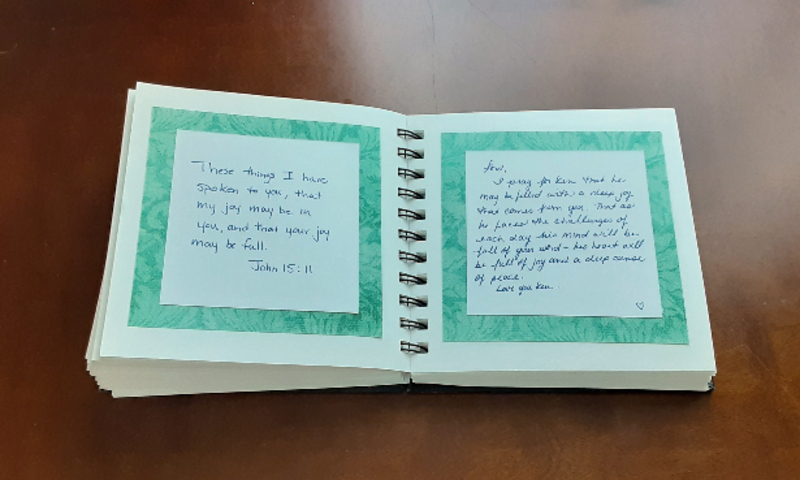 These things I have
spoken to you, that
my joy may be in
you, and that your joy
may be full.
John 15:11
I pray for Ken that he
may be filled with a deep joy
that comes from you. That as
he faces the challenges of
each day his mind will be
full of your word - his heart will
be full of joy and a deep sense
of peace.
Love you Ken.